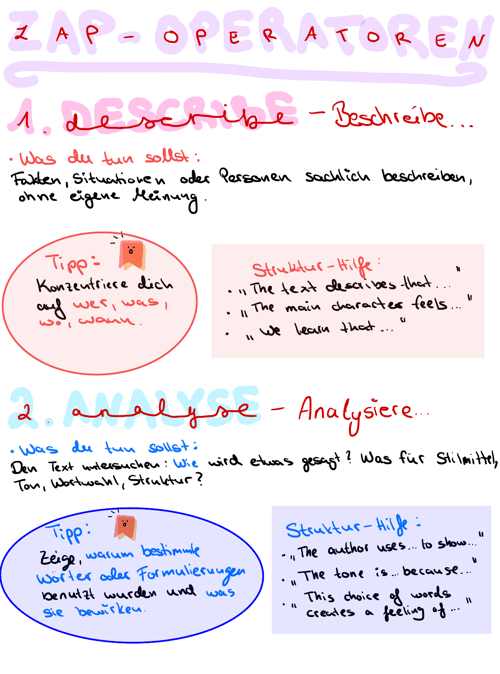 ZAP - OPERATOREN
1. describe - Beschreibe...
• Was du tun sollst:
Fakten, Situationen oder Personen sachlich beschreiben,
ohne eigene Meinung.
Tipp:
Konzentriere dich
auf wer, was,
wo, wann.
Struktur-Hilfe:
• „The text describes that..."
• „The main character feels..."
• „We learn that..."
2. analyse - Analysiere...
• Was du tun sollst:
Den Text untersuchen: Wie wird etwas gesagt? Was für Stilmittel,
Ton, Wortwahl, Struktur?
Tipp:
Zeige, warum bestimmte
Wörter oder Formulierungen
benutzt wurden und was
sie bewirken.
Struktur-Hilfe:
• „The author uses... to show..."
• „The tone is... because..."
• „This choice of words
creates a feeling of..."